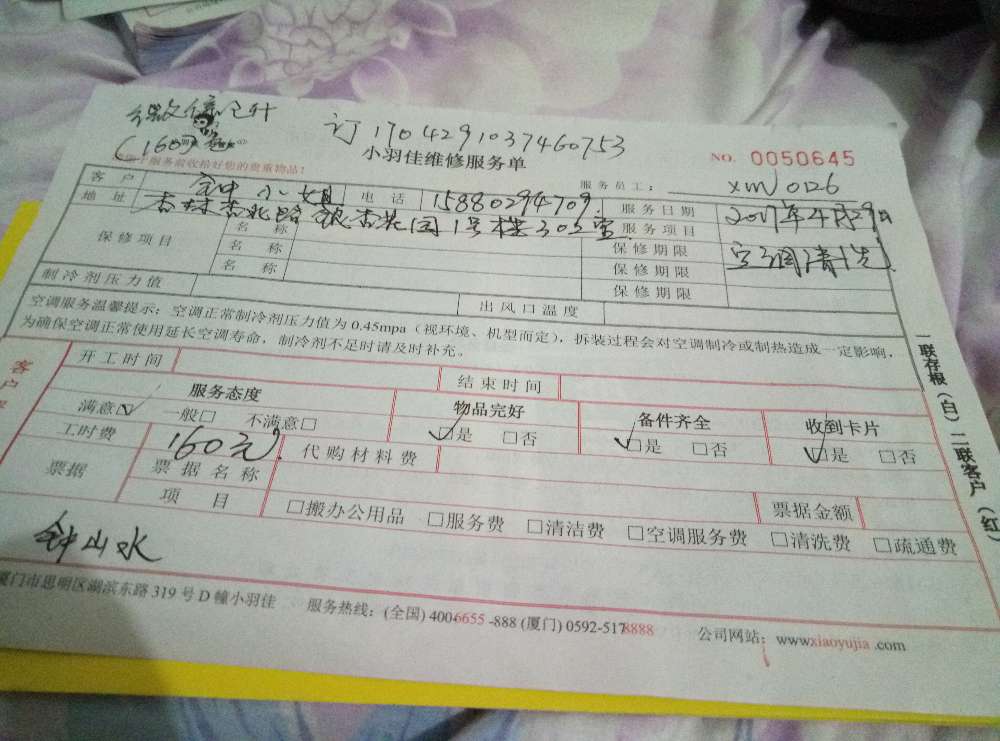 微信
(160元
订1704291037460753
小羽佳维修服务单
NO. 0050645
服务前收拾好您的贵重物品！
服务员工： xm0126
客户 钟小姐 电话 15880294709 服务日期 2017年4月29日
地址 杏林杏北路银杏花园1号楼303室 服务项目 空调清洗
保修项目 名称 保修期限
名称 保修期限
名称 保修期限
制冷剂压力值 出风口温度
空调服务温馨提示：空调正常制冷剂压力值为 0.45mpa（视环境、机型而定），拆装过程会对空调制冷或制热造成一定影响，
为确保空调正常使用延长空调寿命，制冷剂不足时请及时补充。
开工时间 结束时间
客户
服务态度 物品完好 备件齐全 收到卡片
满意☑ 一般□ 不满意□ ☑是 □否 ☑是 □否 ☑是 □否
工时费 160元 代购材料费
票据 票据名称 票据金额
项目 □搬办公用品 □服务费 □清洁费 □空调服务费 □清洗费 □疏通费
一联存根（白）二联客户（红）
钟山水
厦门市思明区湖滨东路 319 号 D 幢小羽佳 服务热线：(全国) 4006655 -888 (厦门) 0592-5178888 公司网站：www.xiaoyujia .com